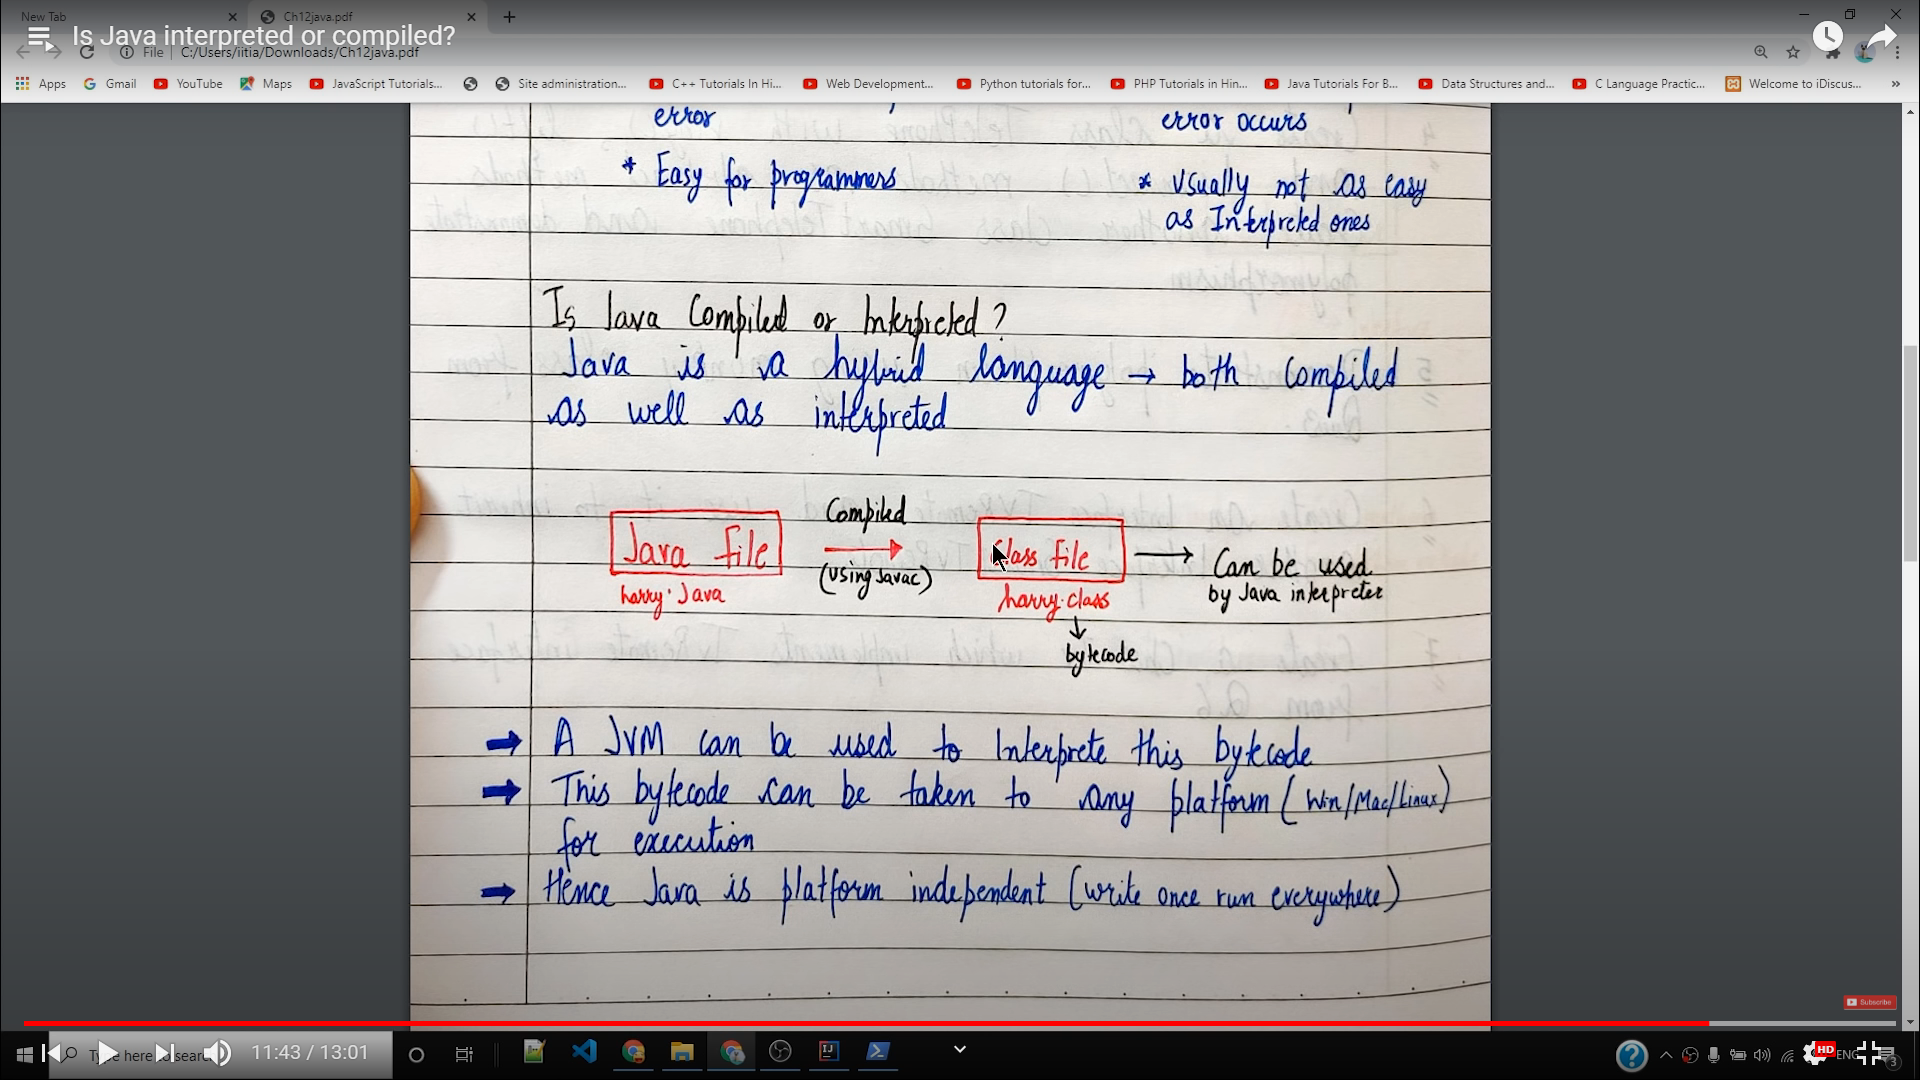 New Tab
Ch12java.pdf
Is Java interpreted or compiled?
File
C:/Users/iitia/Downloads/Ch12java.pdf
Apps
Gmail
YouTube
Maps
JavaScript Tutorials...
Site administration...
C++ Tutorials In Hi...
Web Development...
Python tutorials for...
PHP Tutorials in Hin...
Java Tutorials For B...
Data Structures and...
C Language Practic...
Welcome to iDiscus...
error
error occurs
* Easy for programmers
* Usually not as easy
as Interpreted ones
Is Java Compiled or Interpreted?
Java is a hybrid language → both Compiled
as well as interpreted
Java file
Compiled
(using Javac)
harry.Java
Class file
harry.class
↓
bytecode
→ Can be used
by Java interpreter
➡ A JVM can be used to Interprete this bytecode
➡ This bytecode can be taken to any platform (Win/Mac/Linux)
for execution
➡ Hence Java is platform independent (write once run everywhere)
Subscribe
Type here to searc
11:43 / 13:01
HD
ENG
3